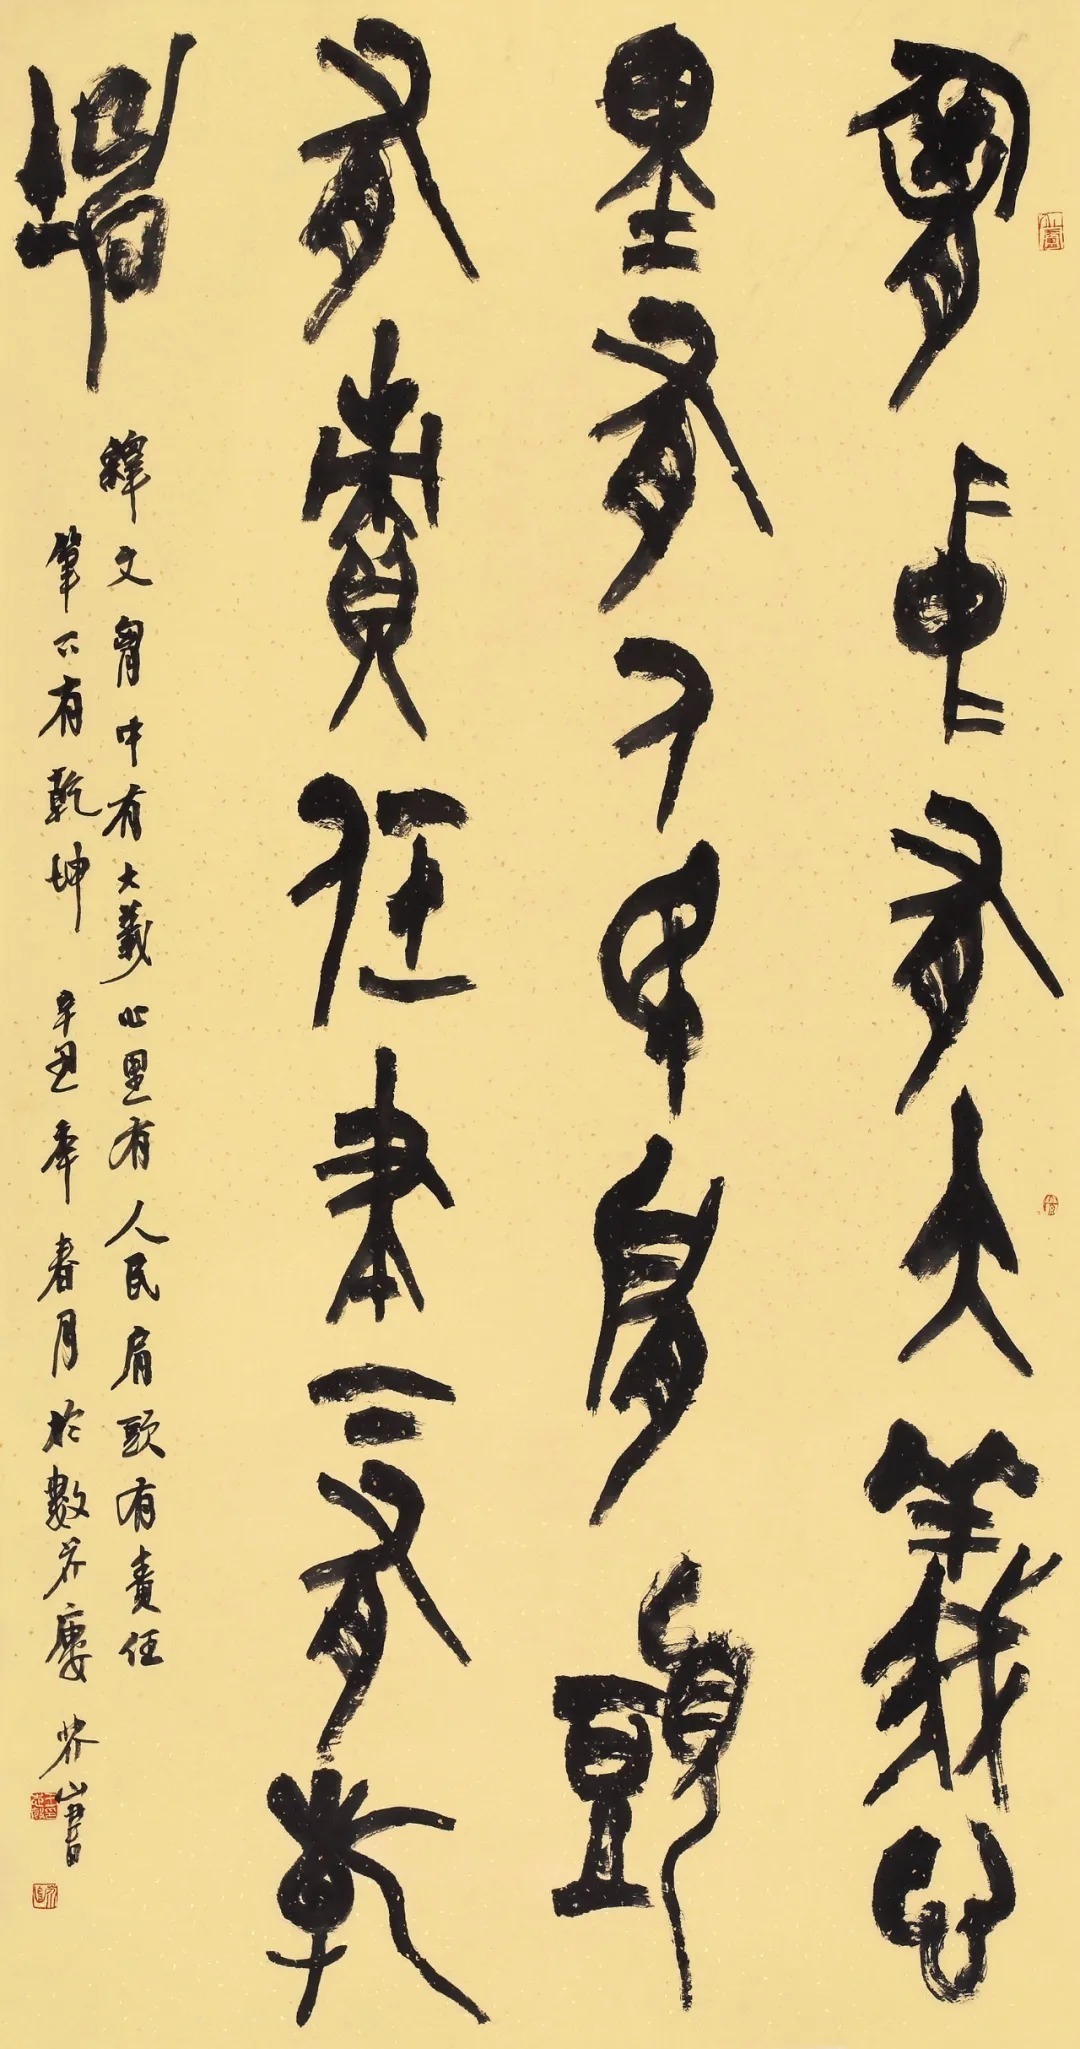 胷中有大義心
里有人民肩頭
有責任筆下有乾
坤
釋文胷中有大義心里有人民肩頭有責任
筆下有乾坤 辛丑年春月於數芥廔 芥山書